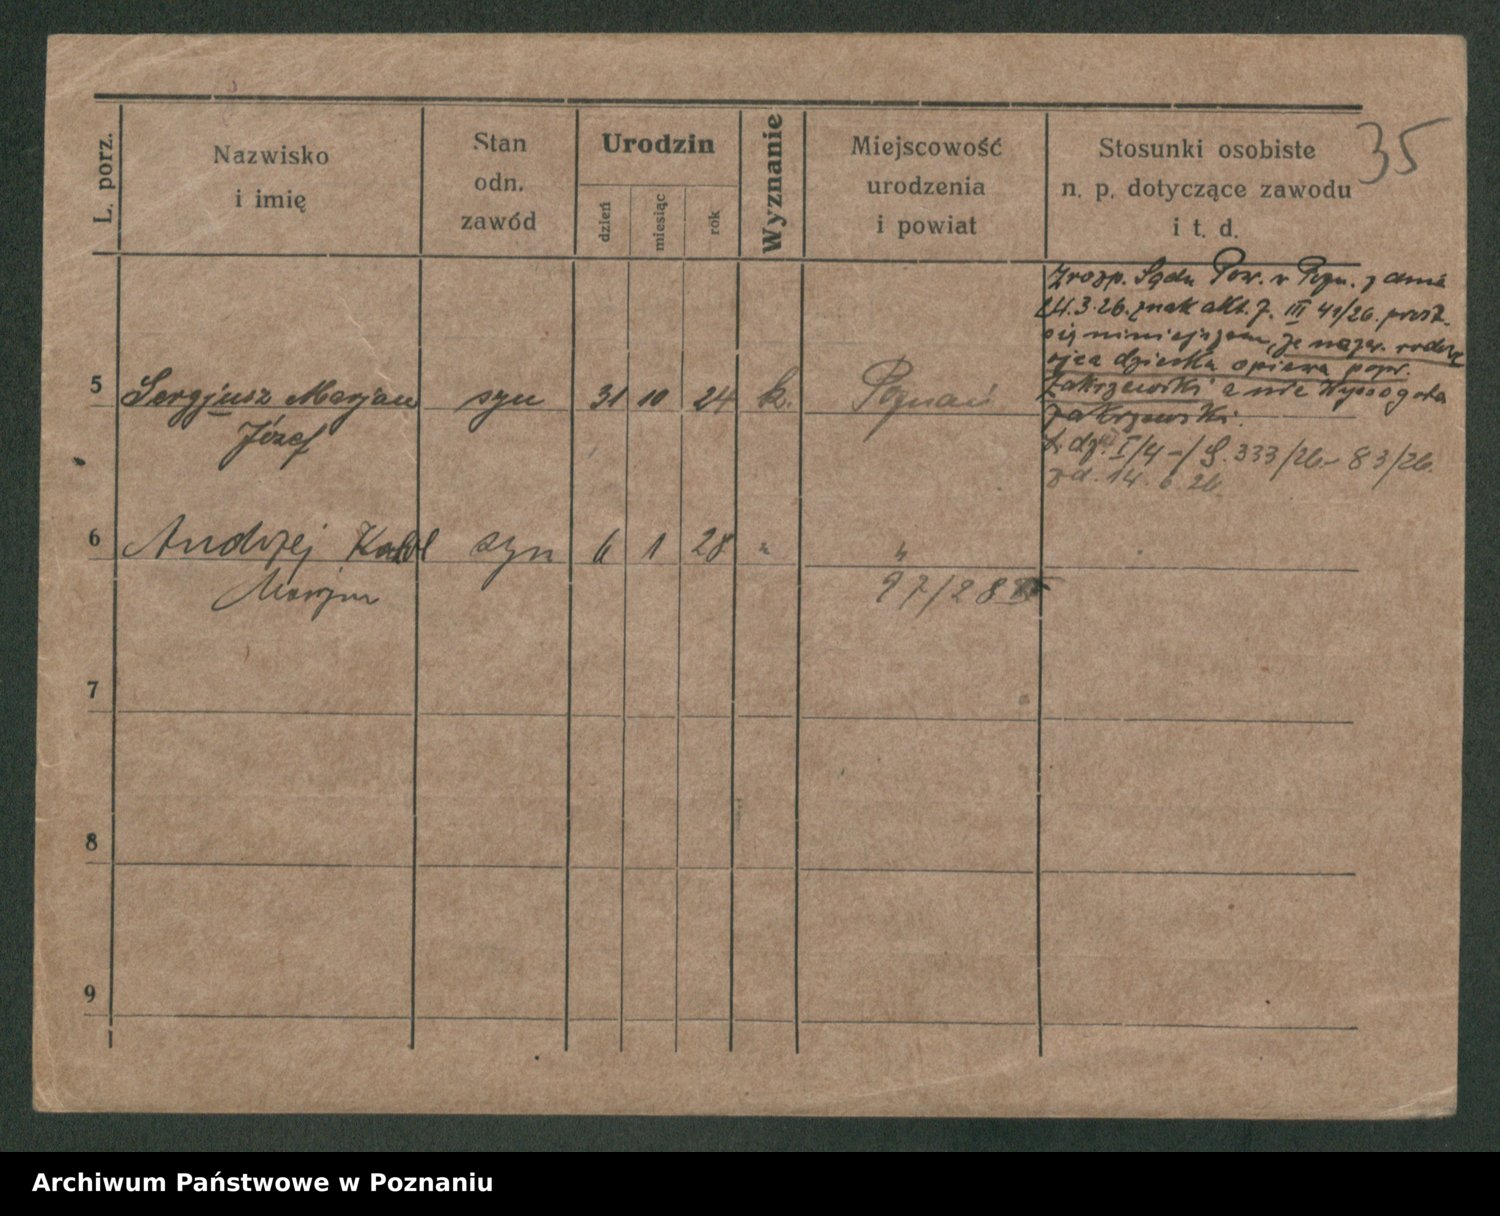 35
L. porz.
Nazwisko
i imię
Stan
odn.
zawód
Urodzin
dzień
miesiąc
rok
Wyznanie
Miejscowość
urodzenia
i powiat
Stosunki osobiste
n. p. dotyczące zawodu
i t. d.
5 Sergjusz Marjan syn 31 10 24 k. Poznań
Józef
Z rozp. Sądu Pow. w Pozn. z dnia
24.3.26. znak akt. 7. III 41/26. prost.
się niniejszem, że nazw. rodow.
ojca dziecka opiewa popr.
Zakrzewski a nie Wyssogota
Zakrzewski.
L. dz. I/4-/S. 333/26 - 83/26.
z d. 14. 6. 26.
6 Andrzej Karol syn 6 1 28 " "
Marjan
97/28
7
8
9
Archiwum Państwowe w Poznaniu